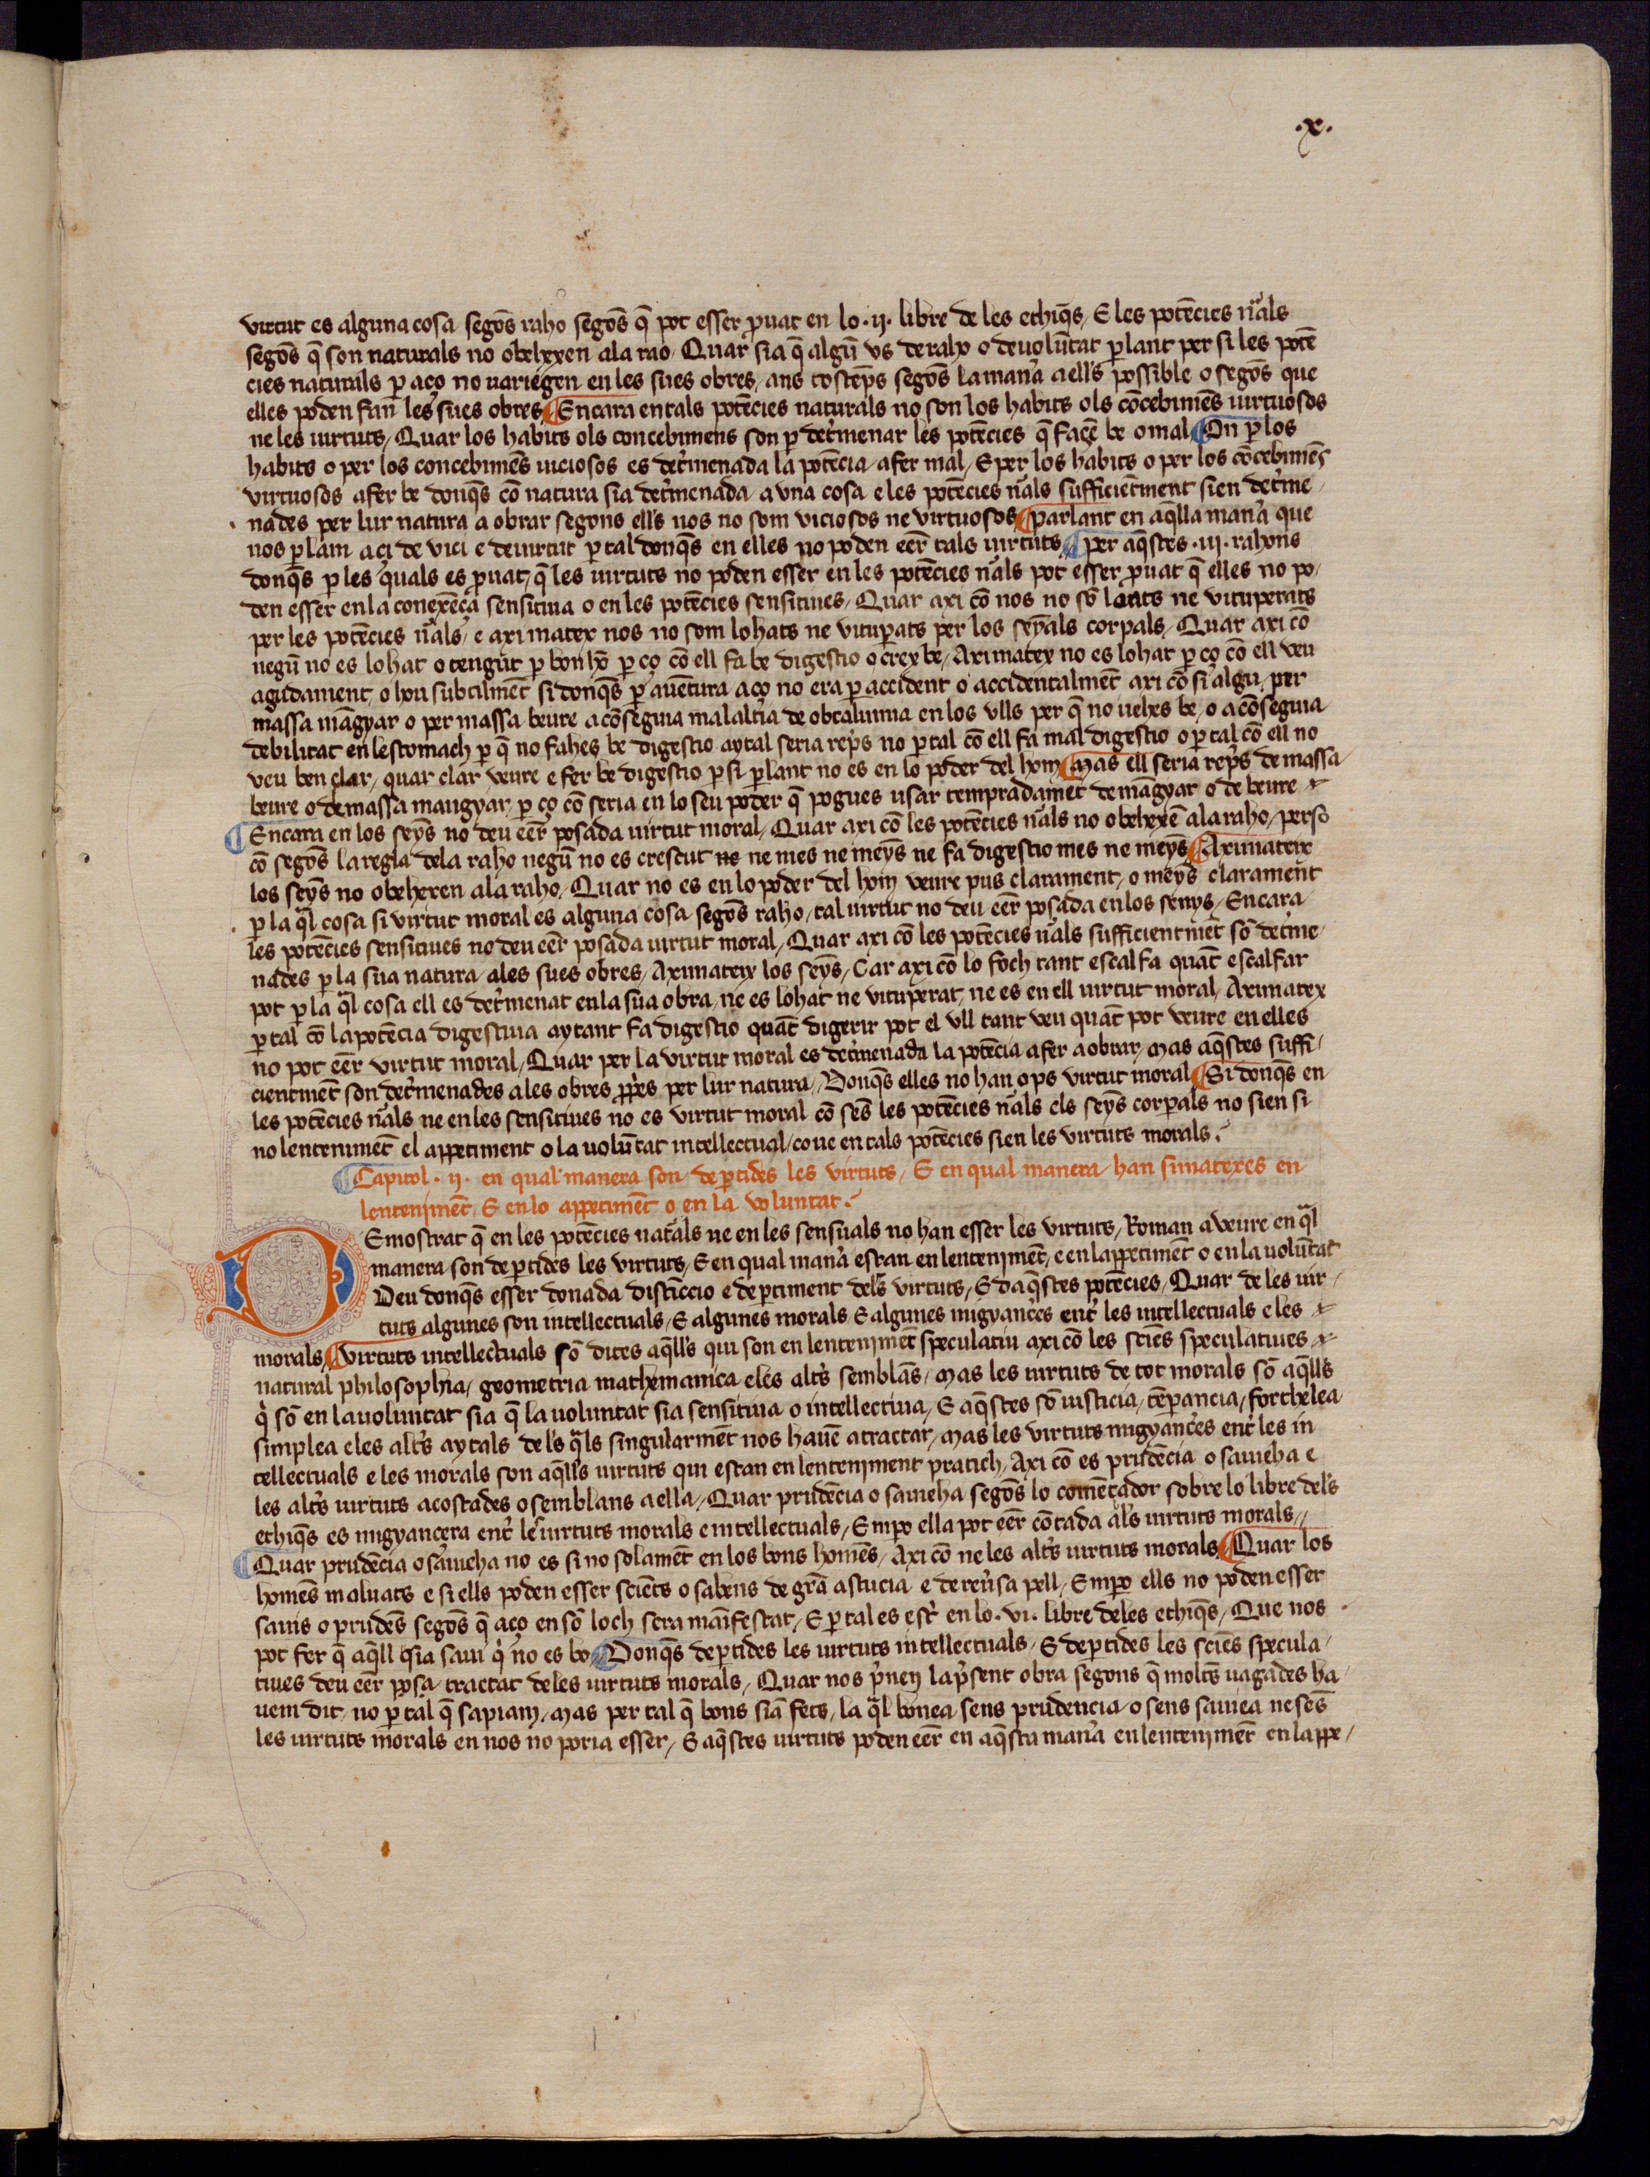 .x.
virtut es alguna cosa segõs raho segõs q̃ pot esser ꝓuat en lo .ij. libre de les ethiq̃s / E les potẽcies nãls
segõs q̃ son naturals no obehexen ala rao / Quar sia q̃ algũ vs de raho o de uolũtat ꝑlant per si les potẽ
cies naturals ꝑ aço no uariegen en les sues obres / ans tostẽps segõs la manã a ells possible o segõs que
elles poden fan les sues obres ¶ Encara en tals potẽcies naturals no son los habits ols cõcebimẽs uirtuosos
ne les uirtuts / Quar los habits ols concebimens son ꝑ det̃menar les potẽcies q̃ façẽ be o mal ¶ On ꝑ los
habits o per los concebimẽs uiciosos es det̃menada la potẽcia a fer mal / E per los habits o per los cõcebimẽs
virtuosos a fer be donq̃s cõ natura sia det̃menada a vna cosa e les potẽcies nãls sufficiẽtment sien det̃me
nades per lur natura a obrar segons ells nos no som viciosos ne virtuosos ¶ parlant en aq̃lla manã que
nos ꝑlam aci de vici e de uirtut ꝑ tal donq̃s en elles no poden eẽr tals uirtuts ¶ per aq̃stes .iij. rahons
donq̃s ꝑ les quals es ꝓuat / q̃ les uirtuts no poden esser en les potẽcies nãls pot esser ꝓuat q̃ elles no po
den esser en la conexẽça sensitiua o en les potẽcies sensitiues / Quar axi cõ nos no sõ loats ne vituperats
per les potẽcies nãls / e axi matex nos no som lohats ne vituꝑats per los seyãls corpals / Quar axi cõ
negũ no es lohat o tengut ꝑ bon hõ ꝑ ço cõ ell fa be digestio o crex be / Axi matex no es lohat ꝑ ço cõ ell veu
agudament / o hou subtilmẽt si donq̃s ꝑ auẽtura aço no era ꝑ accident o accidentalmẽt axi cõ si algu per
massa mãgyar o per massa beure acõseguia malaltia de obtalumia en los vlls per q̃ no uehes be / o acõseguia
debilitat en lestomach ꝑ q̃ no fahes be digestio aytal seria rep̃s no ꝑ tal cõ ell fa mal digestio o ꝑ tal cõ ell no
veu ben clar / quar clar veure e fer be digestio ꝑ si ꝑlant no es en lo poder del hom ¶ mas ell seria rep̃s de massa
beure o de massa maugyar ꝑ ço cõ seria en lo seu poder q̃ pogues usar tempradamẽt de mãgyar o de beure
¶ Encara en los seys no deu eẽr posada uirtut moral / Quar axi cõ les potẽcies nãls no obehexẽ ala raho / perso
cõ segõs la regla dela raho negũ no es crescut ne ne mes ne meys ne fa digestio mes ne meys ¶ Axi mateix
los seys no obehexen ala raho / Quar no es en lo poder del hom veure pus clarament / o meys clarament
ꝑ la q̃l cosa si virtut moral es alguna cosa segõs raho / tal uirtut no deu eẽr posada en los senys / Encara
les potẽcies sensitiues no deu eẽr posada uirtut moral / Quar axi cõ les potẽcies nãls sufficientmẽt sõ det̃me
nades ꝑ la sua natura ales sues obres / Axi mateix los seys / Car axi cõ lo foch tant escalfa quãt escalfar
pot ꝑ la q̃l cosa ell es det̃menat en la sua obra / ne es lohat ne vituperat / ne es en ell uirtut moral / Axi matex
ꝑ tal cõ la potẽcia digestiua aytant fa digestio quãt digerir pot el vll tant veu quãt pot veure en elles
no pot eẽr virtut moral / Quar per la virtut moral es det̃menada la potẽcia a fer a obrar / mas aq̃stes suffi
cientmẽt son det̃menades ales obres ꝓp̃es per lur natura / Donq̃s elles no han ops virtut moral ¶ Si donq̃s en
les potẽcies nãls ne en les sensitiues no es virtut moral cõ sẽs les potẽcies nãls els seys corporals no sien si
no lentenimẽt el appetiment o la uolũtat intellectual / coue en tals potẽcies sien les virtuts morals .
¶ Capitol . ij . en qual manera son deꝑtides les virtuts / E en qual manera han si matexes en
lentenimẽt / E en lo appetimẽt o en la voluntat .
DEmostrat q̃ en les potẽcies natãls ne en les sensuals no han esser les virtuts / Roman a veure en q̃l
manera son deꝑtides les virtuts / E en qual manã estan en lentenimẽt / e en lappetimẽt o en la uolũtat
Deu donq̃s esser donada distĩccio e deꝑtiment dels virtuts / E daq̃stes potẽcies / Quar de les uir
tuts algunes son intellectuals / E algunes morals / E algunes migyançes ent̃ les intellectuals e les
morals ¶ Virtuts intellectuals sõ dites aq̃lls qui son en lentenimẽt speculatiu axi cõ les sciẽs speculatiues
natural philosophia / geometria mathemanica e les alt̃s semblãs / mas les uirtuts de tot morals sõ aq̃lls
q̃ sõ en la uoluntat sia q̃ la uoluntat sia sensitiua o intellectiua / E aq̃stes sõ iusticia / tẽpancia / forthelea
simplea e les alt̃s aytals dels q̃ls singularmẽt nos hauẽ a tractar / mas les virtuts migyançes ent̃ les in
tellectuals e les morals son aq̃lls uirtuts qui estan en lenteniment pratich / Axi cõ es prudẽcia o sauieha e
les alt̃s uirtuts acostades o semblans a ella / Quar prudẽcia o sauieha segõs lo comẽtador sobre lo libre dels
ethiq̃s es migyancera ent̃ les uirtuts morals e intellectuals / Empo ella pot eẽr cõtada als uirtuts morals //
¶ Quar prudẽcia o sauieha no es si no solamẽt en los bons homẽs / Axi cõ ne les alt̃s uirtuts morals ¶ Quar los
homẽs maluats e si ells poden esser sciẽts o sabens de grã astucia e de reũsa pell / Empo ells no poden esser
sauis o prudẽs segõs q̃ aço en sõ loch sera mãifestat / E ꝑ tal es est̃ en lo . vi . libre deles ethiq̃s / Que nos
pot fer q̃ aq̃ll q̃ia saui q̃ no es bo ¶ Donq̃s deꝑtides les uirtuts intellectuals / E deꝑtides les sciẽs specula
tiues deu eẽr posa tractat deles uirtuts morals / Quar nos p̃nem la p̃sent obra segons q̃ molts uagades ha
uem dit / no ꝑ tal q̃ sapiam / mas per tal q̃ bons siã fets / la q̃l bonea sens prudencia o sens sauiea ne sẽs
les uirtuts morals en nos no poria esser / E aq̃stes uirtuts poden eẽr en aq̃sta manã en lentenimẽt en lappe /